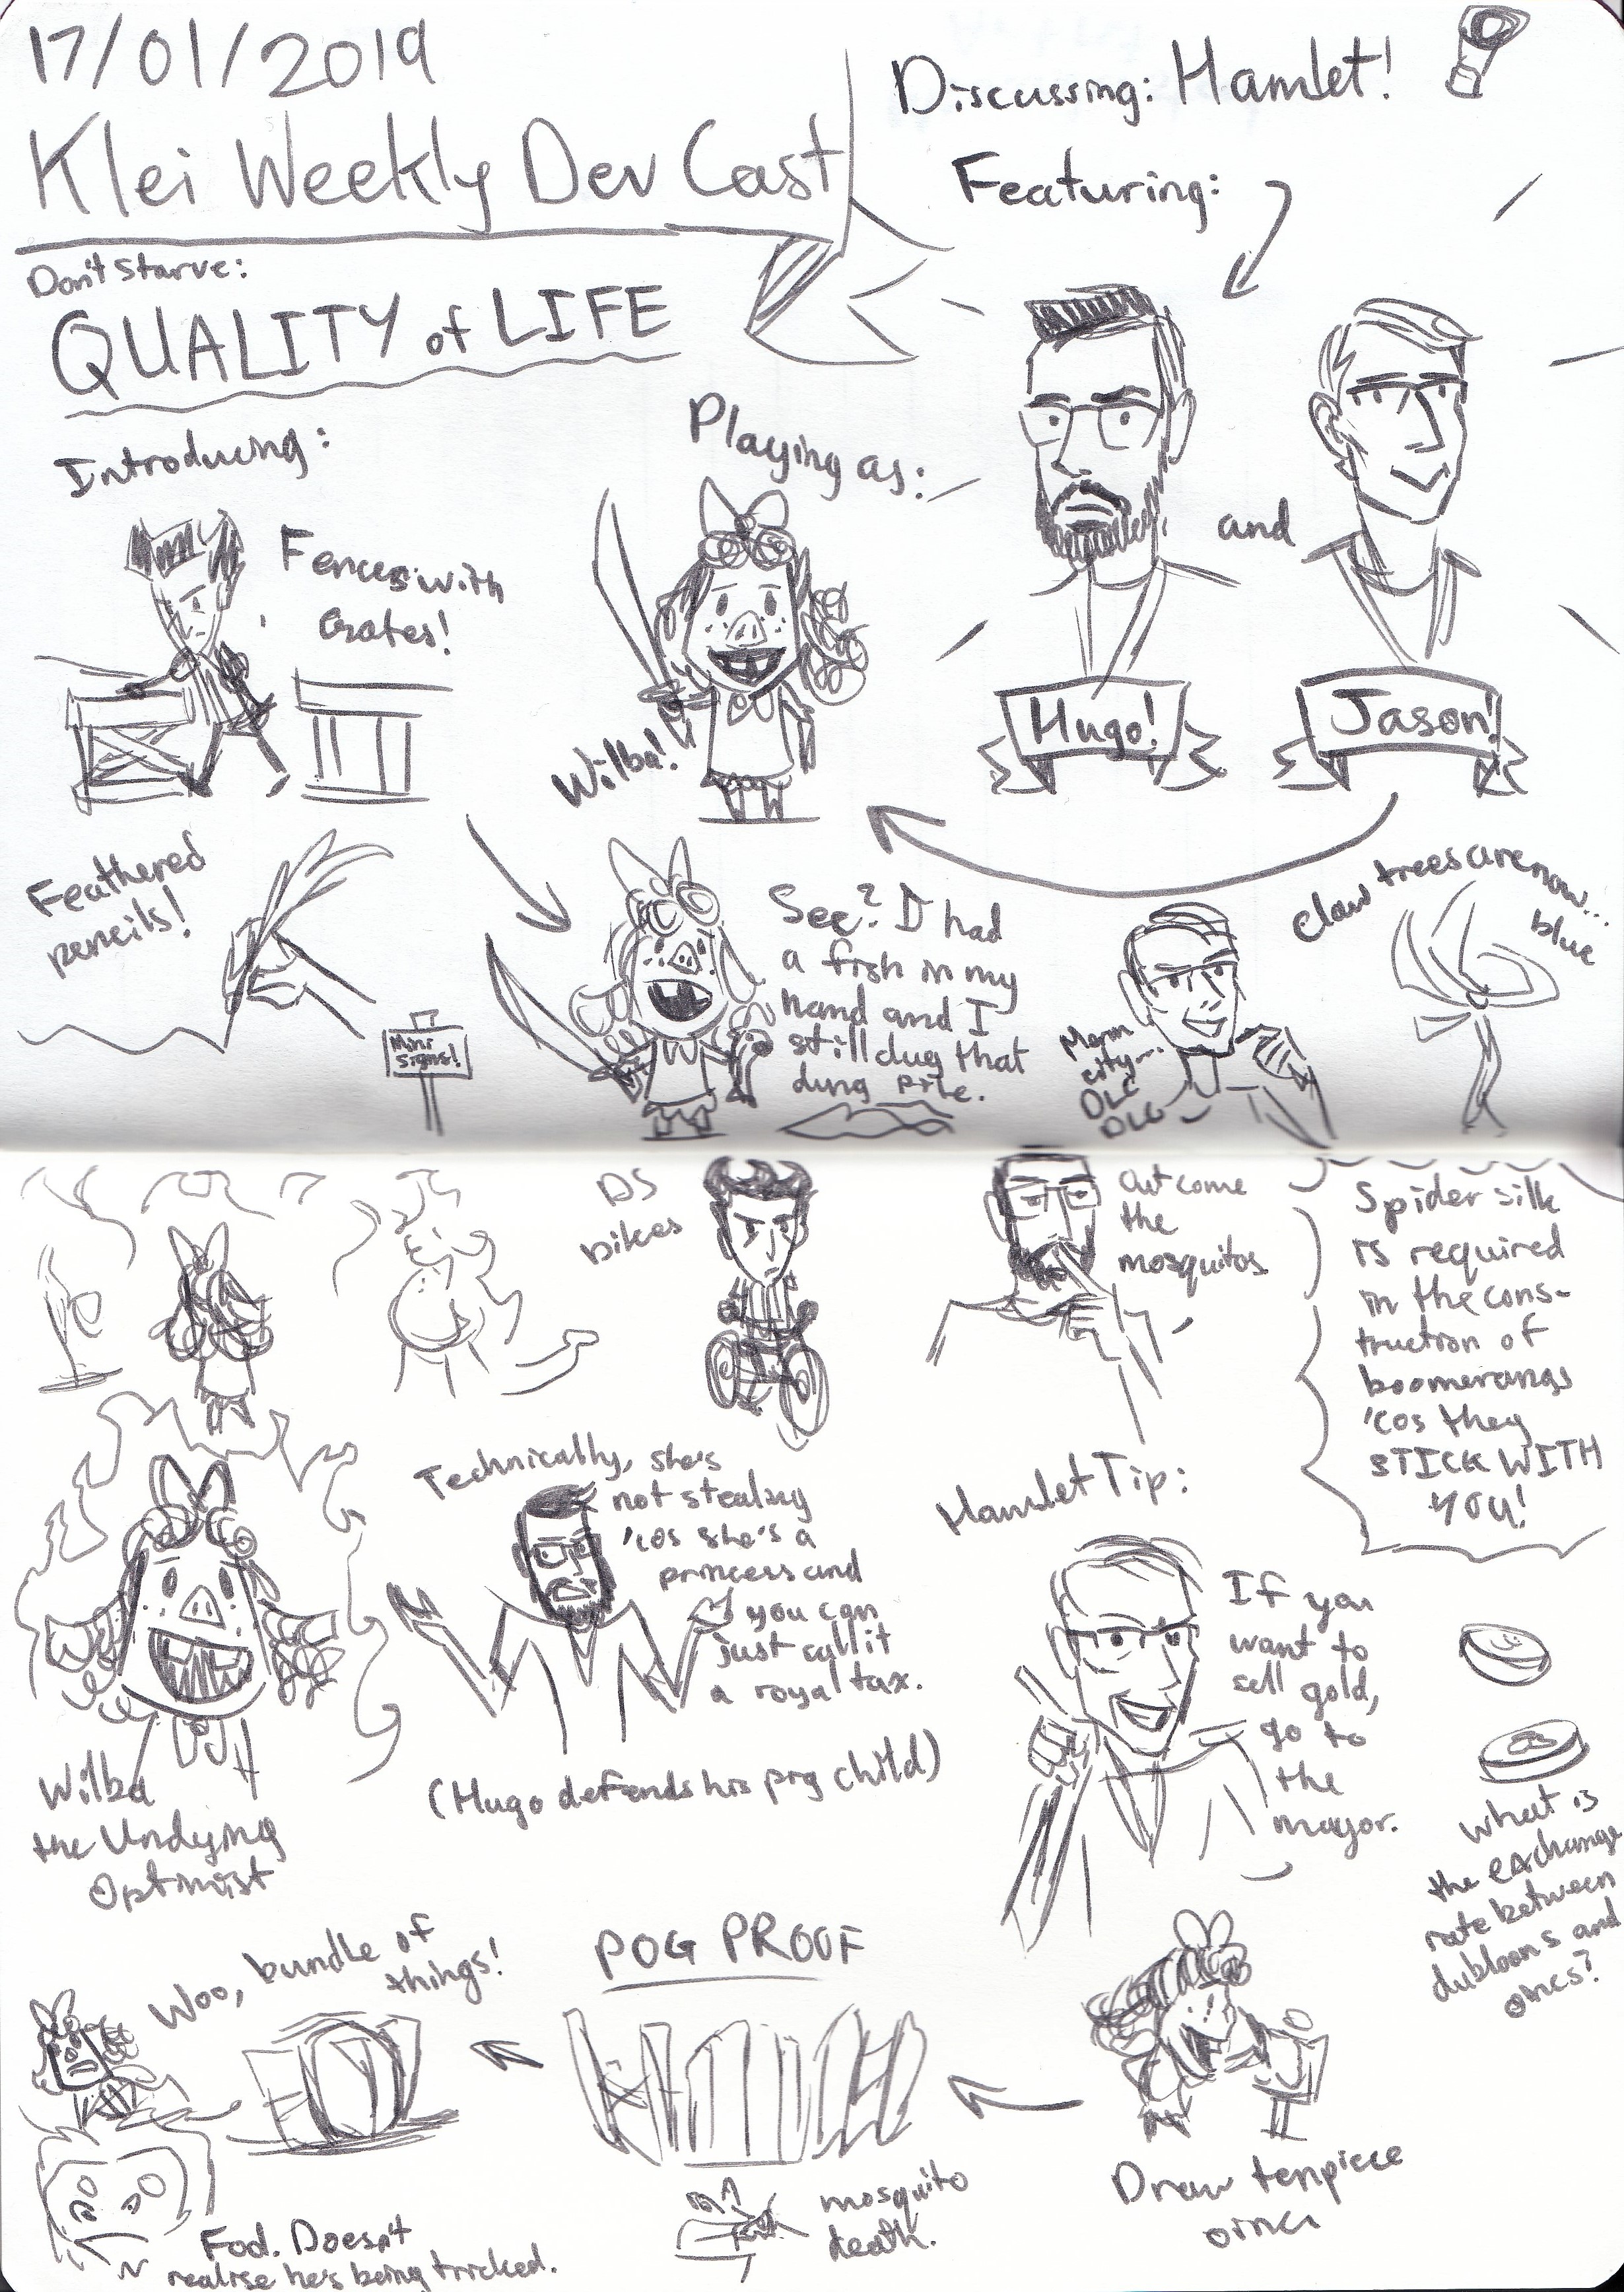 17/01/2019
Klei Weekly Dev Cast
Discussing: Hamlet!
Featuring:
Don't Starve:
QUALITY of LIFE
Introducing:
Fences with
Gates!
Playing as:
Wilba!
and
Hugo!
Jason!
Feathered
pencils!
Mini
Signs!
See? I had
a fish in my
hand and I
still dug that
dung pile.
city...
DLC
DLC
Claw trees are now...
blue
DS
bikes
Out come
the
mosquitos
Spider silk
is required
in the cons-
truction of
boomerangs
'cos they
STICK WITH
YOU!
Technically, she's
not stealing
'cos she's a
princess and
you can
just call it
a royal tax.
(Hugo defends his pig child)
Wilba
the Undying
Optimist
Hamlet Tip:
If you
want to
sell gold,
go to
the
mayor.
What is
the exchange
rate between
dubloons and
oincs?
Woo, bundle of
things!
POG PROOF
mosquito
death.
Draw tenpiece
oincs
Fool. Doesn't
realise he's being tricked.